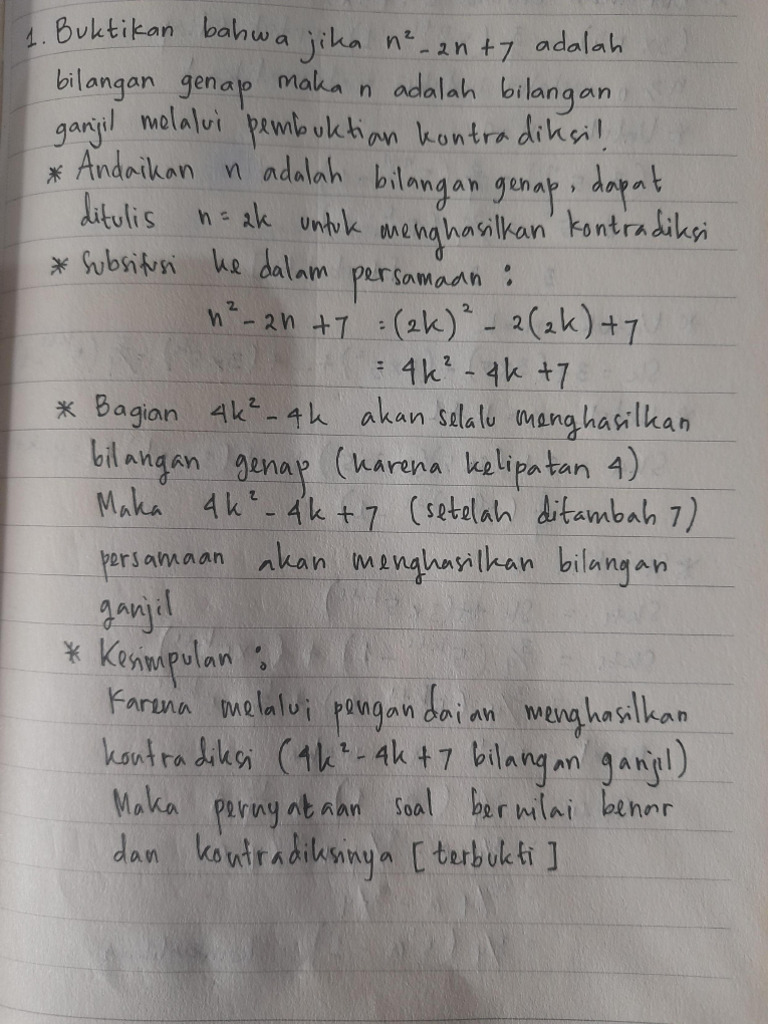 1. Buktikan bahwa jika n² - 2n + 7 adalah
bilangan genap maka n adalah bilangan
ganjil melalui pembuktian kontradiksi!
* Andaikan n adalah bilangan genap, dapat
ditulis n = 2k untuk menghasilkan kontradiksi
* Subsitusi ke dalam persamaan :
n² - 2n + 7 = (2k)² - 2(2k) + 7
= 4k² - 4k + 7
* Bagian 4k² - 4k akan selalu menghasilkan
bilangan genap (karena kelipatan 4)
Maka 4k² - 4k + 7 (setelah ditambah 7)
persamaan akan menghasilkan bilangan
ganjil
* Kesimpulan :
Karena melalui pengandaian menghasilkan
kontradiksi (4k² - 4k + 7 bilangan ganjil)
Maka pernyataan soal bernilai benar
dan kontradiksinya [terbukti]